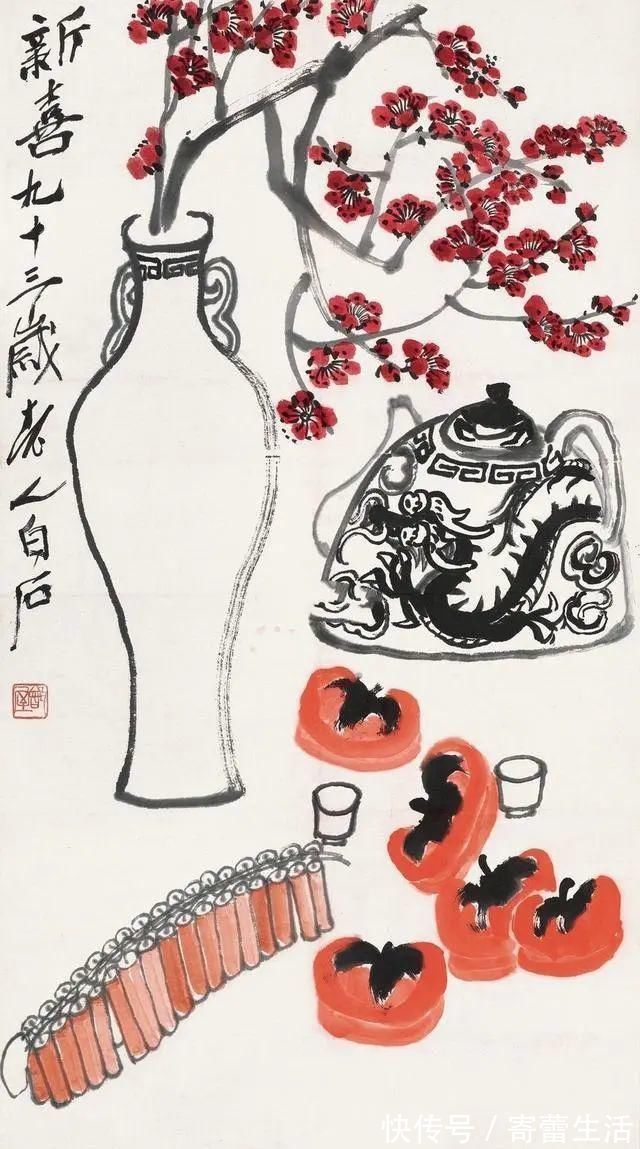 新喜九十三歲老人白石
快传号／寄蕾生活